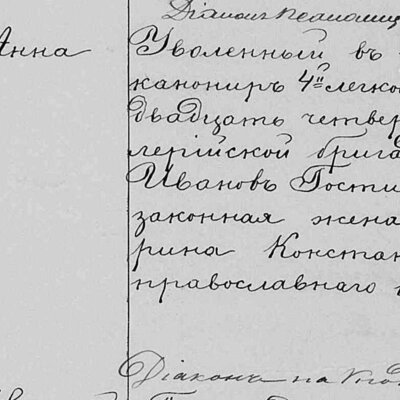 Діаконъ
Анна
Уволенный въ
канониръ 4й легко
двадцать четвер
лерійской брига
Ивановъ Гости
законная жена
рина Констан
православнаго
Діаконъ на